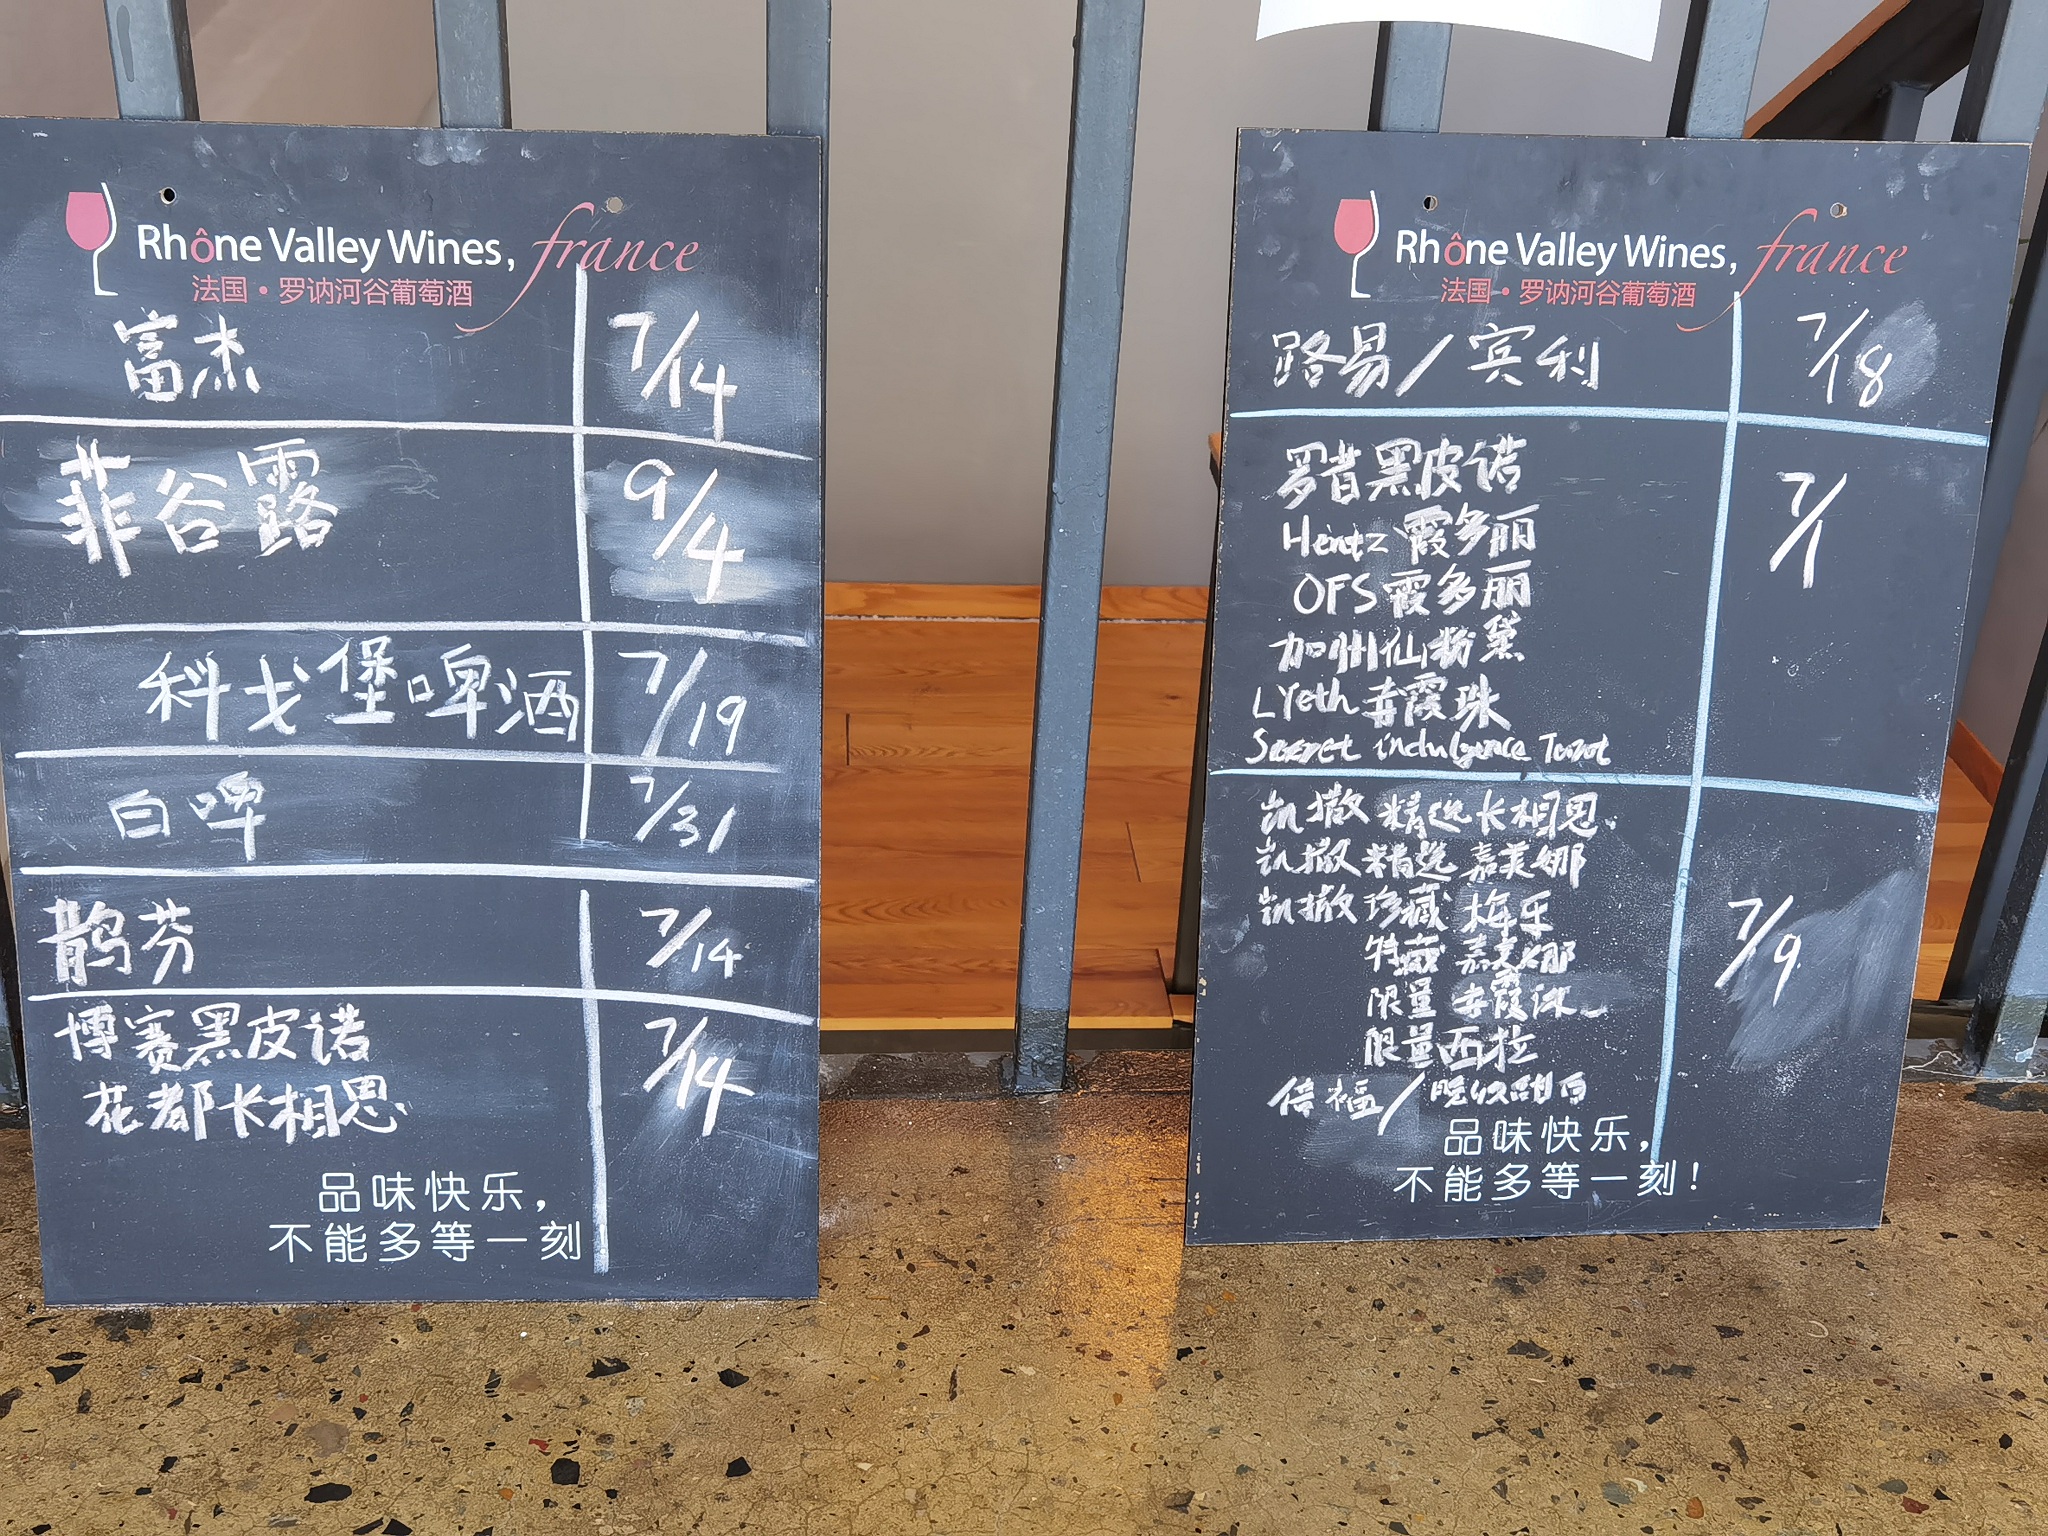 Rhône Valley Wines, france
法国·罗讷河谷葡萄酒
富杰 7/14
菲谷露 9/4
科戈堡啤酒 7/19
白啤 7/31
鹊芬 7/14
博赛黑皮诺 7/14
花都长相思
品味快乐,
不能多等一刻
Rhône Valley Wines, france
法国·罗讷河谷葡萄酒
路易/宾利 7/18
罗肯黑皮诺 7/1
Hentz 霞多丽
OFS 霞多丽
加州仙粉黛
LYeth 赤霞珠
Secret indulgence
凯撒 精选 长相思
凯撒 精选 嘉美娜
凯撒 珍藏 梅乐
特藏 嘉美娜 7/9
限量 赤霞珠
限量西拉
倍福/晚收甜白
品味快乐,
不能多等一刻!